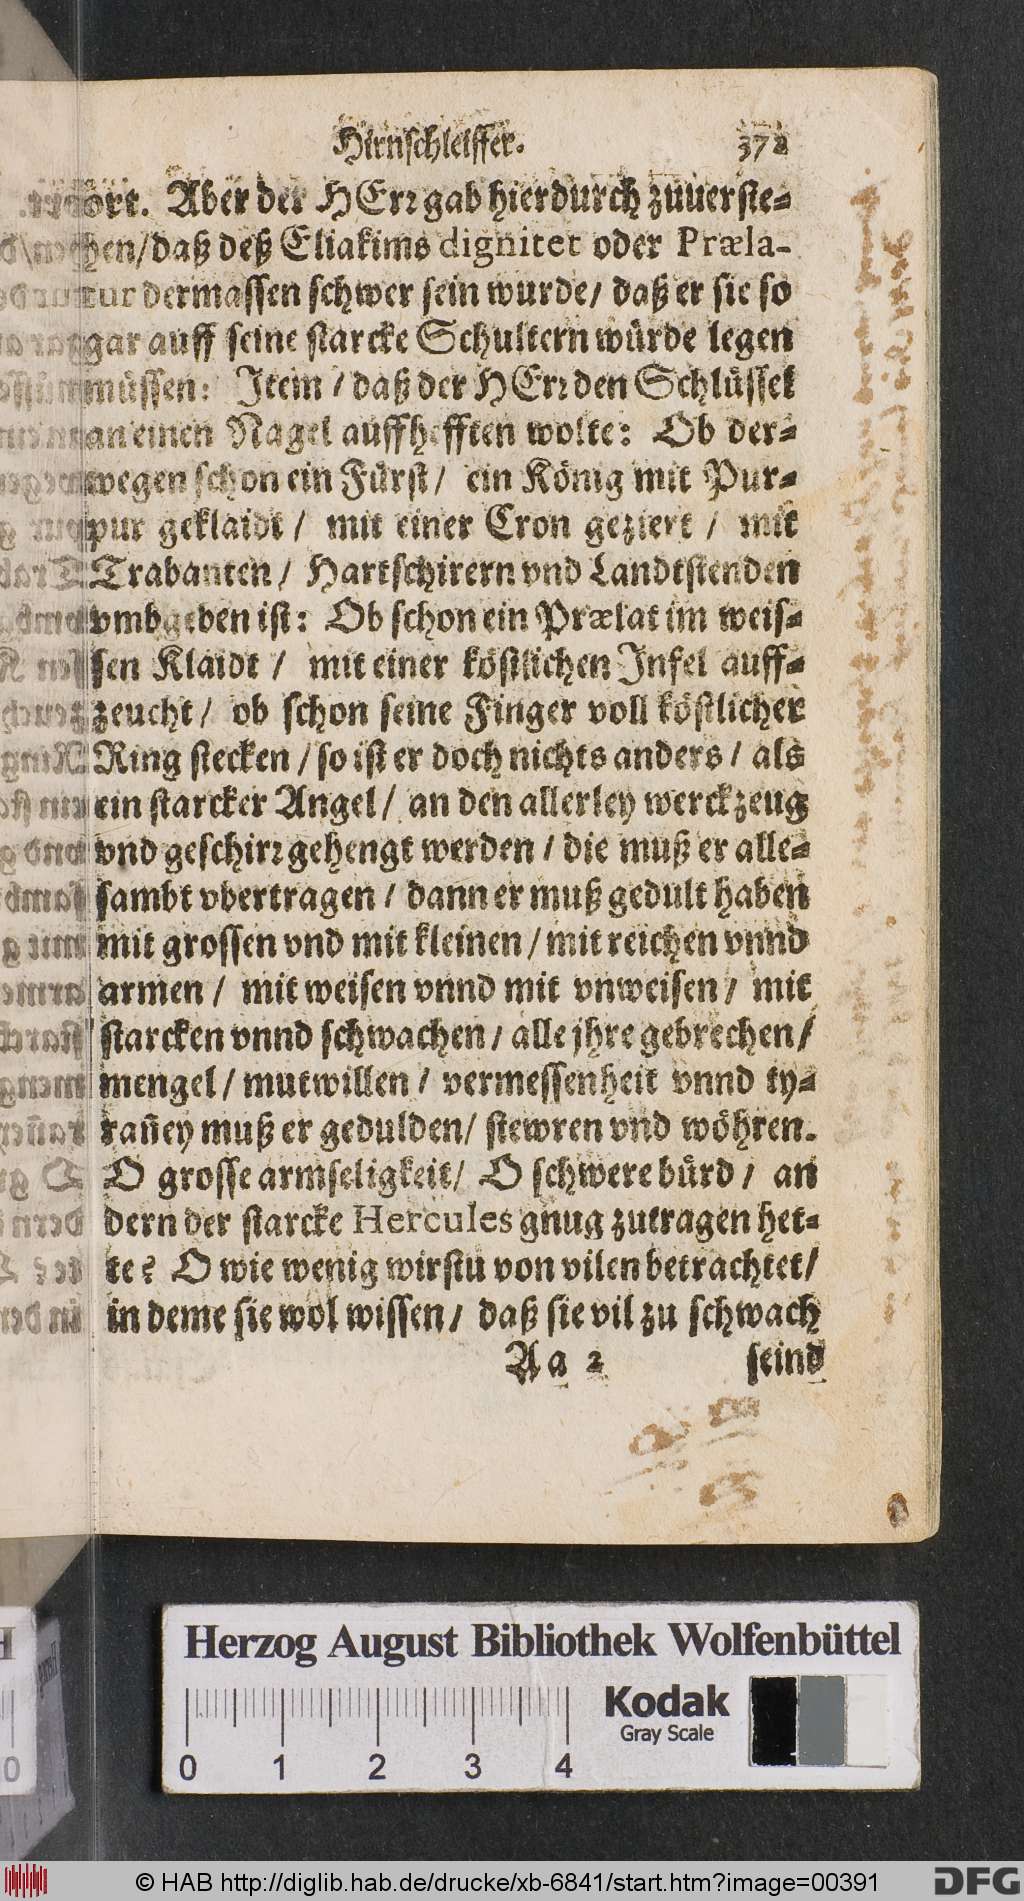 Hirnschleiffer. 372
ört. Aber der HErr gab hierdurch zuuerste-
hen/ daß deß Eliakims dignitet oder Præla-
tur dermassen schwer sein wurde/ daß er sie so
gar auff seine starcke Schultern würde legen
müssen: Item / daß der HErr den Schlüssel
an einen Nagel auffhefften wolte: Ob der-
wegen schon ein Fürst/ ein König mit Pur-
pur geklaidt / mit einer Cron geziert / mit
Trabanten/ Hartschirern vnd Landtstenden
vmbgeben ist: Ob schon ein Prælat im weis-
sen Klaidt / mit einer köstlichen Infel auff-
zeucht/ ob schon seine Finger voll köstlicher
Ring stecken / so ist er doch nichts anders / als
ein starcker Angel/ an den allerley werckzeug
vnd geschirr gehengt werden / die muß er alle-
sambt vbertragen / dann er muß gedult haben
mit grossen vnd mit kleinen / mit reichen vnnd
armen / mit weisen vnnd mit vnweisen / mit
starcken vnnd schwachen / alle jhre gebrechen /
mengel / mutwillen / vermessenheit vnnd ty-
rañey muß er gedulden/ stewren vnd wöhren.
O grosse armseligkeit/ O schwere bürd / an
dern der starcke Hercules gnug zutragen het-
te? O wie wenig wirstu von vilen betrachtet/
in deme sie wol wissen / daß sie vil zu schwach
Aa 2 seind
Herzog August Bibliothek Wolfenbüttel
Kodak
Gray Scale
0 1 2 3 4
© HAB http://diglib.hab.de/drucke/xb-6841/start.htm?image=00391
DFG